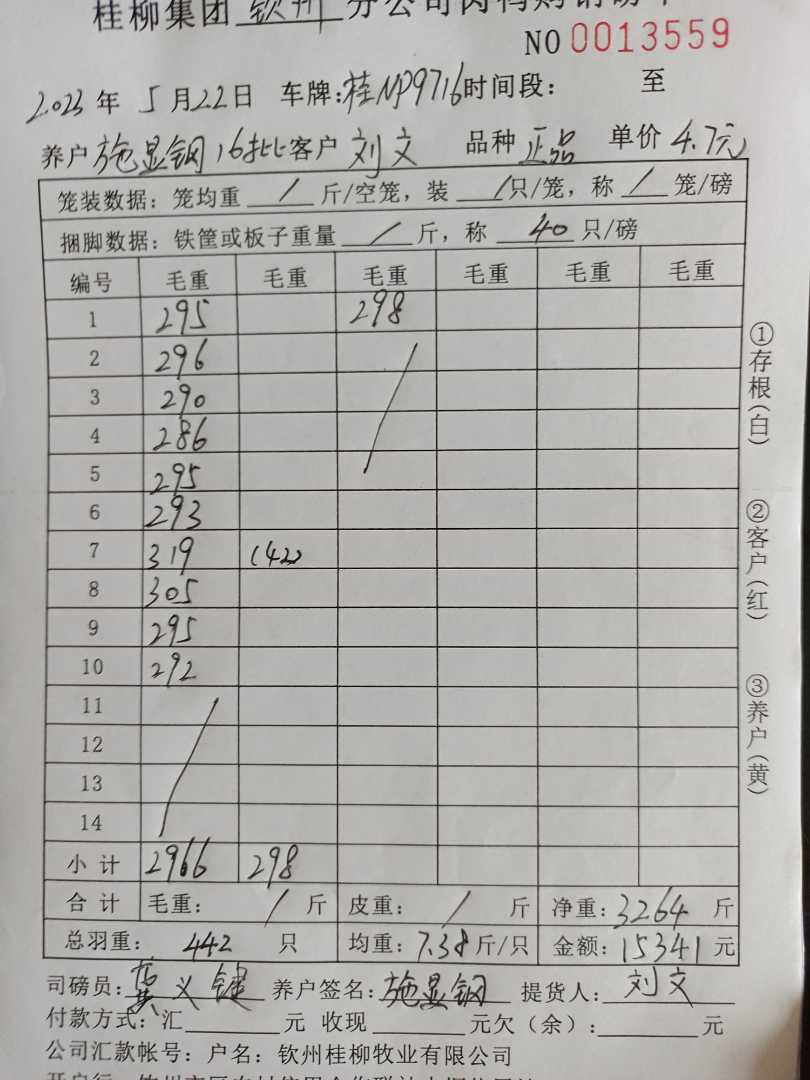 桂柳集团 钦州 分公司肉鸭购销磅单
NO 0013559
2023 年 5 月 22 日 车牌: 桂NP9716 时间段: 至
养户 施显钢 16批 客户 刘文 品种 正品 单价 4.7元
笼装数据: 笼均重 / 斤/空笼, 装 / 只/笼, 称 / 笼/磅
捆脚数据: 铁筐或板子重量 / 斤, 称 40 只/磅
编号 毛重 毛重 毛重 毛重 毛重 毛重
1 295 298
2 296
3 290
4 286
5 295
6 293
7 319 (42)
8 305
9 295
10 292
11
12
13
14
小计 2966 298
合计 毛重: / 斤 皮重: / 斤 净重: 3264 斤
总羽重: 442 只 均重: 7.38 斤/只 金额: 15341 元
司磅员: 义键 养户签名: 施显钢 提货人: 刘文
付款方式: 汇 元 收现 元欠(余): 元
公司汇款帐号: 户名: 钦州桂柳牧业有限公司
①存根(白)
②客户(红)
③养户(黄)